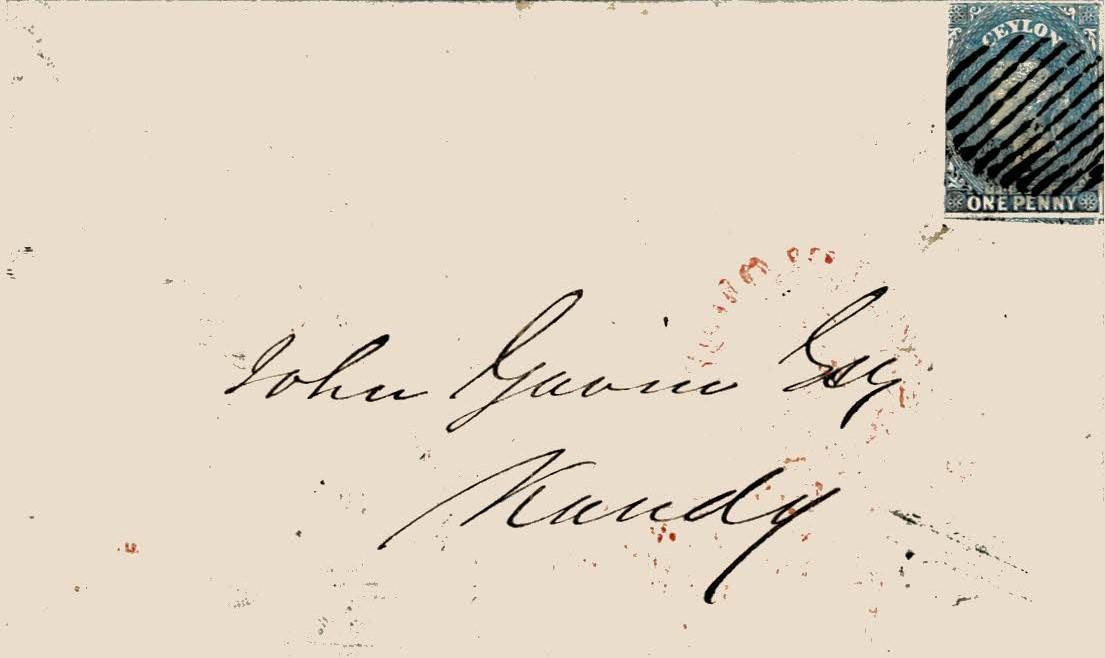 CEYLON
ONE PENNY
John Gavin Esq
Kandy